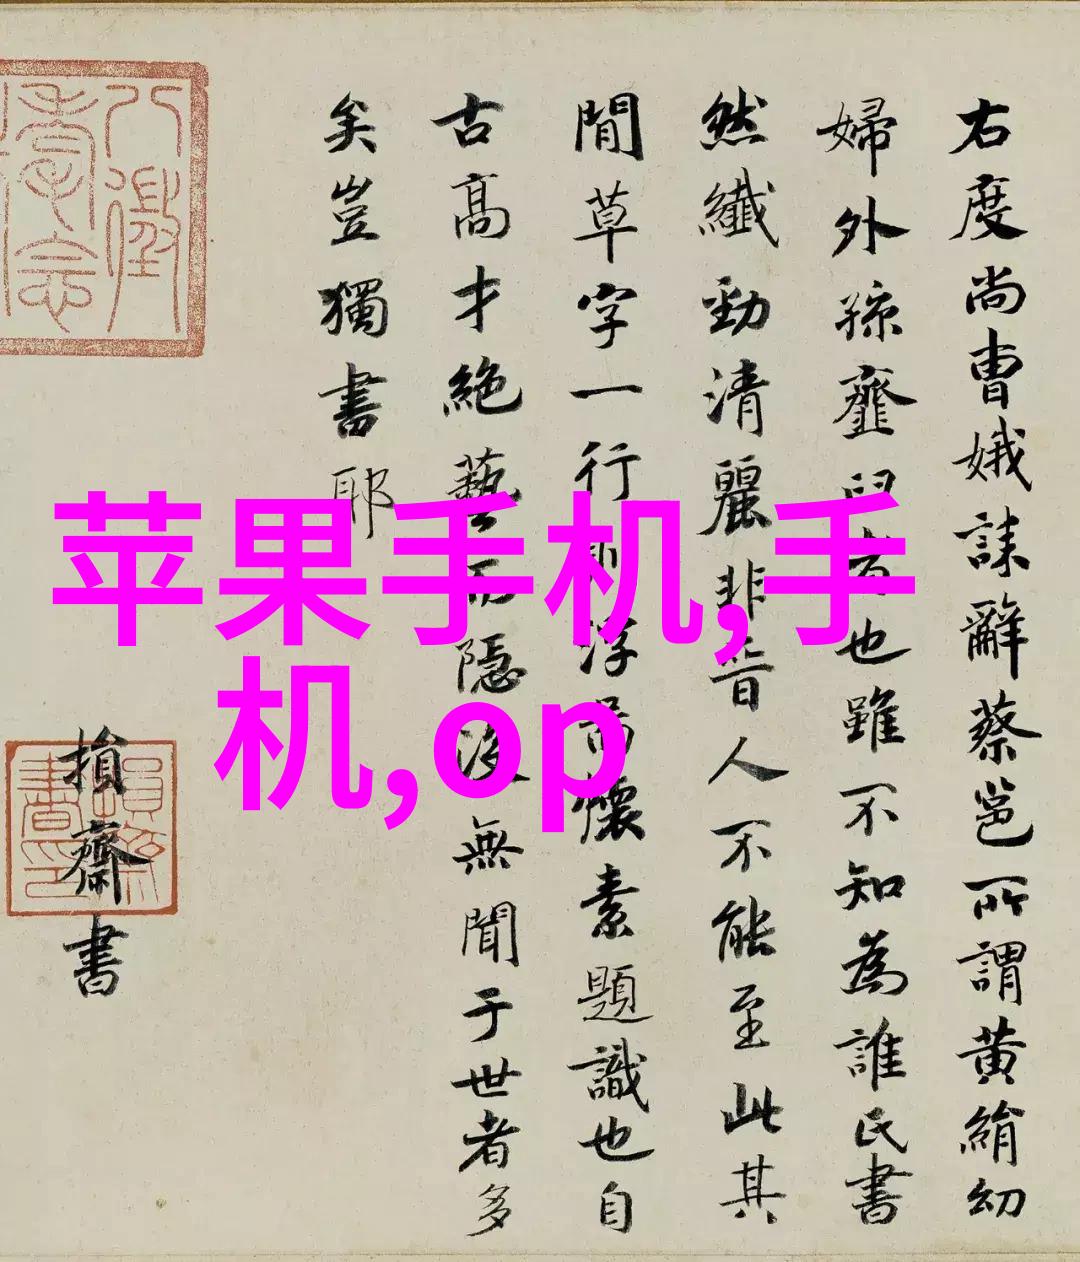 苹果手机,手
机,op
右度尚曹娥誄辭蔡邕所謂黃絹幼
婦外孫韲臼者也雖不知為誰氏書
然纖勁清麗非晉人不能至此其
閒草字一行則浮屠懷素題識也自
古高才絕藝而隱没無聞于世者多
矣豈獨書耶
損齋書
八徵
耄念
損齋
書印